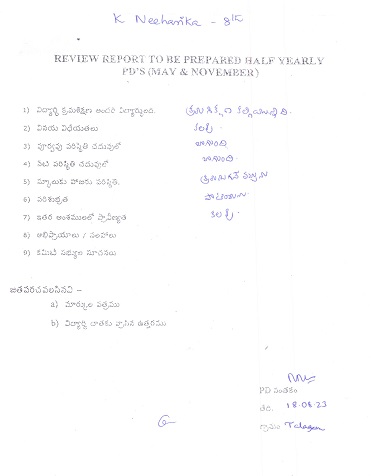 K Neeharika - 8th
REVIEW REPORT TO BE PREPARED HALF YEARLY
PD'S (MAY & NOVEMBER)
1) విద్యార్థి క్రమశిక్షణ అందరి విద్యార్థులది. క్రమశిక్షణ కలిగియున్నది.
2) వినయ విధేయతలు కలవు.
3) పూర్వపు పరిస్థితి చదువులో బాగుంది
4) నేటి పరిస్థితి చదువులో బాగుంది.
5) స్కూలుకు హాజరు పరిస్థితి.
6) పరిశుభ్రత
7) ఇతర అంశములలో ప్రావీణ్యత కలవు.
8) అభిప్రాయాలు / సలహాలు
9) కమిటి సభ్యుల సూచనలు
జతపరచవలసినవి -
a) మార్కుల పత్రము
b) విద్యార్థి దాతకు వ్రాసిన ఉత్తరము
PD సంతకం
తేది. 18.08.23
గ్రామం